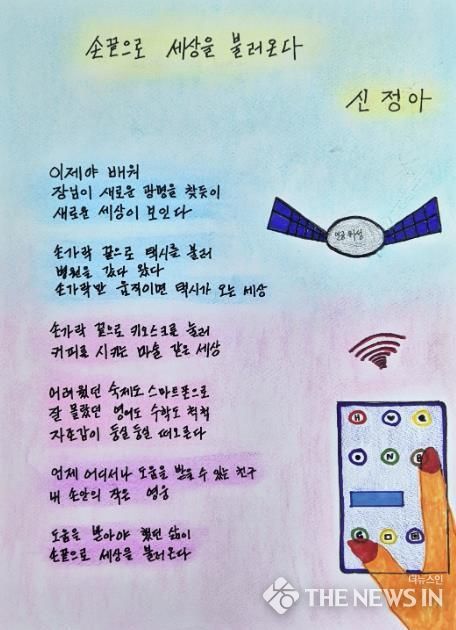 손끝으로 세상을 불러온다
신정아
이제야 배워
장님이 새로운 광명을 찾듯이
새로운 세상이 보인다
손가락 끝으로 택시를 불러
병원을 갔다 왔다
손가락만 움직이면 택시가 오는 세상
손가락 끝으로 키오스크를 눌러
커피를 시키는 마술 같은 세상
어려웠던 숙제도 스마트폰으로
잘 몰랐던 영어도 수학도 척척
자존감이 둥실 둥실 떠오른다
언제 어디서나 도움을 받을 수 있는 친구
내 손안의 작은 영웅
도움을 받아야 했던 삶이
손끝으로 세상을 불러온다
인공위성
H
N
더뉴스인
THE NEWS IN